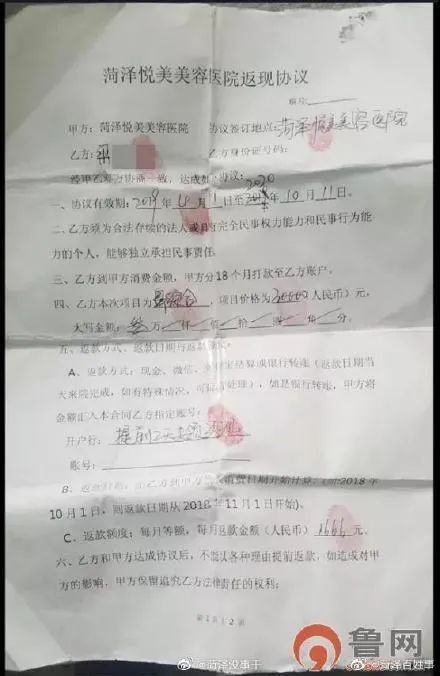 菏泽悦美美容医院返现协议
编号:
甲方：菏泽悦美美容医院 协议签订地点：菏泽悦美美容医院
乙方： 乙方身份证号码：
经甲乙双方协商一致，达成如下协议：
一、协议有效期：2019年4月1日至2020年10月11日。
二、乙方须为合法存续的法人或具有完全民事权力能力和民事行为能
力的个人，能够独立承担民事责任
三、乙方到甲方消费金额，甲方分18个月打款至乙方账户。
四、乙方本次项目为 项目价格为30000人民币）元，
大写金额：叁万 仟 佰 拾 角 分
五、返款方式、返款日期与返款
A、返款方式：现金、微信、支付宝结算或银行转账（返款日期当
天来院完成，如有特殊情况，可 处理），如是银行转账，甲方将
金额汇入本合同乙方指定账号：
开户行：提前2天
账号：
B、返款日期： 乙方到甲方 消费日期开始计算。（如2018年
10月1日，则返款日期从2018年11月1日开始）。
C、返款额度：每月等额，每月返款金额（人民币）1666元。
六、乙方和甲方达成协议后，不能以各种理由提前返款，如造成对甲
方的影响，甲方保留追究乙方法律责任的权利；
第1页 共2页
@菏泽没事干
鲁网
@菏泽百姓事